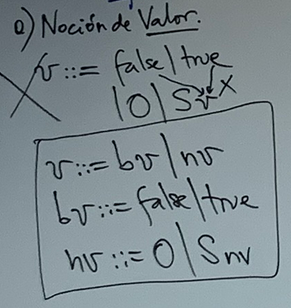 a) Noción de Valor.
v ::= false | true
| 0 | Sv
v ::= bv | nv
bv ::= false | true
nv ::= 0 | Snv